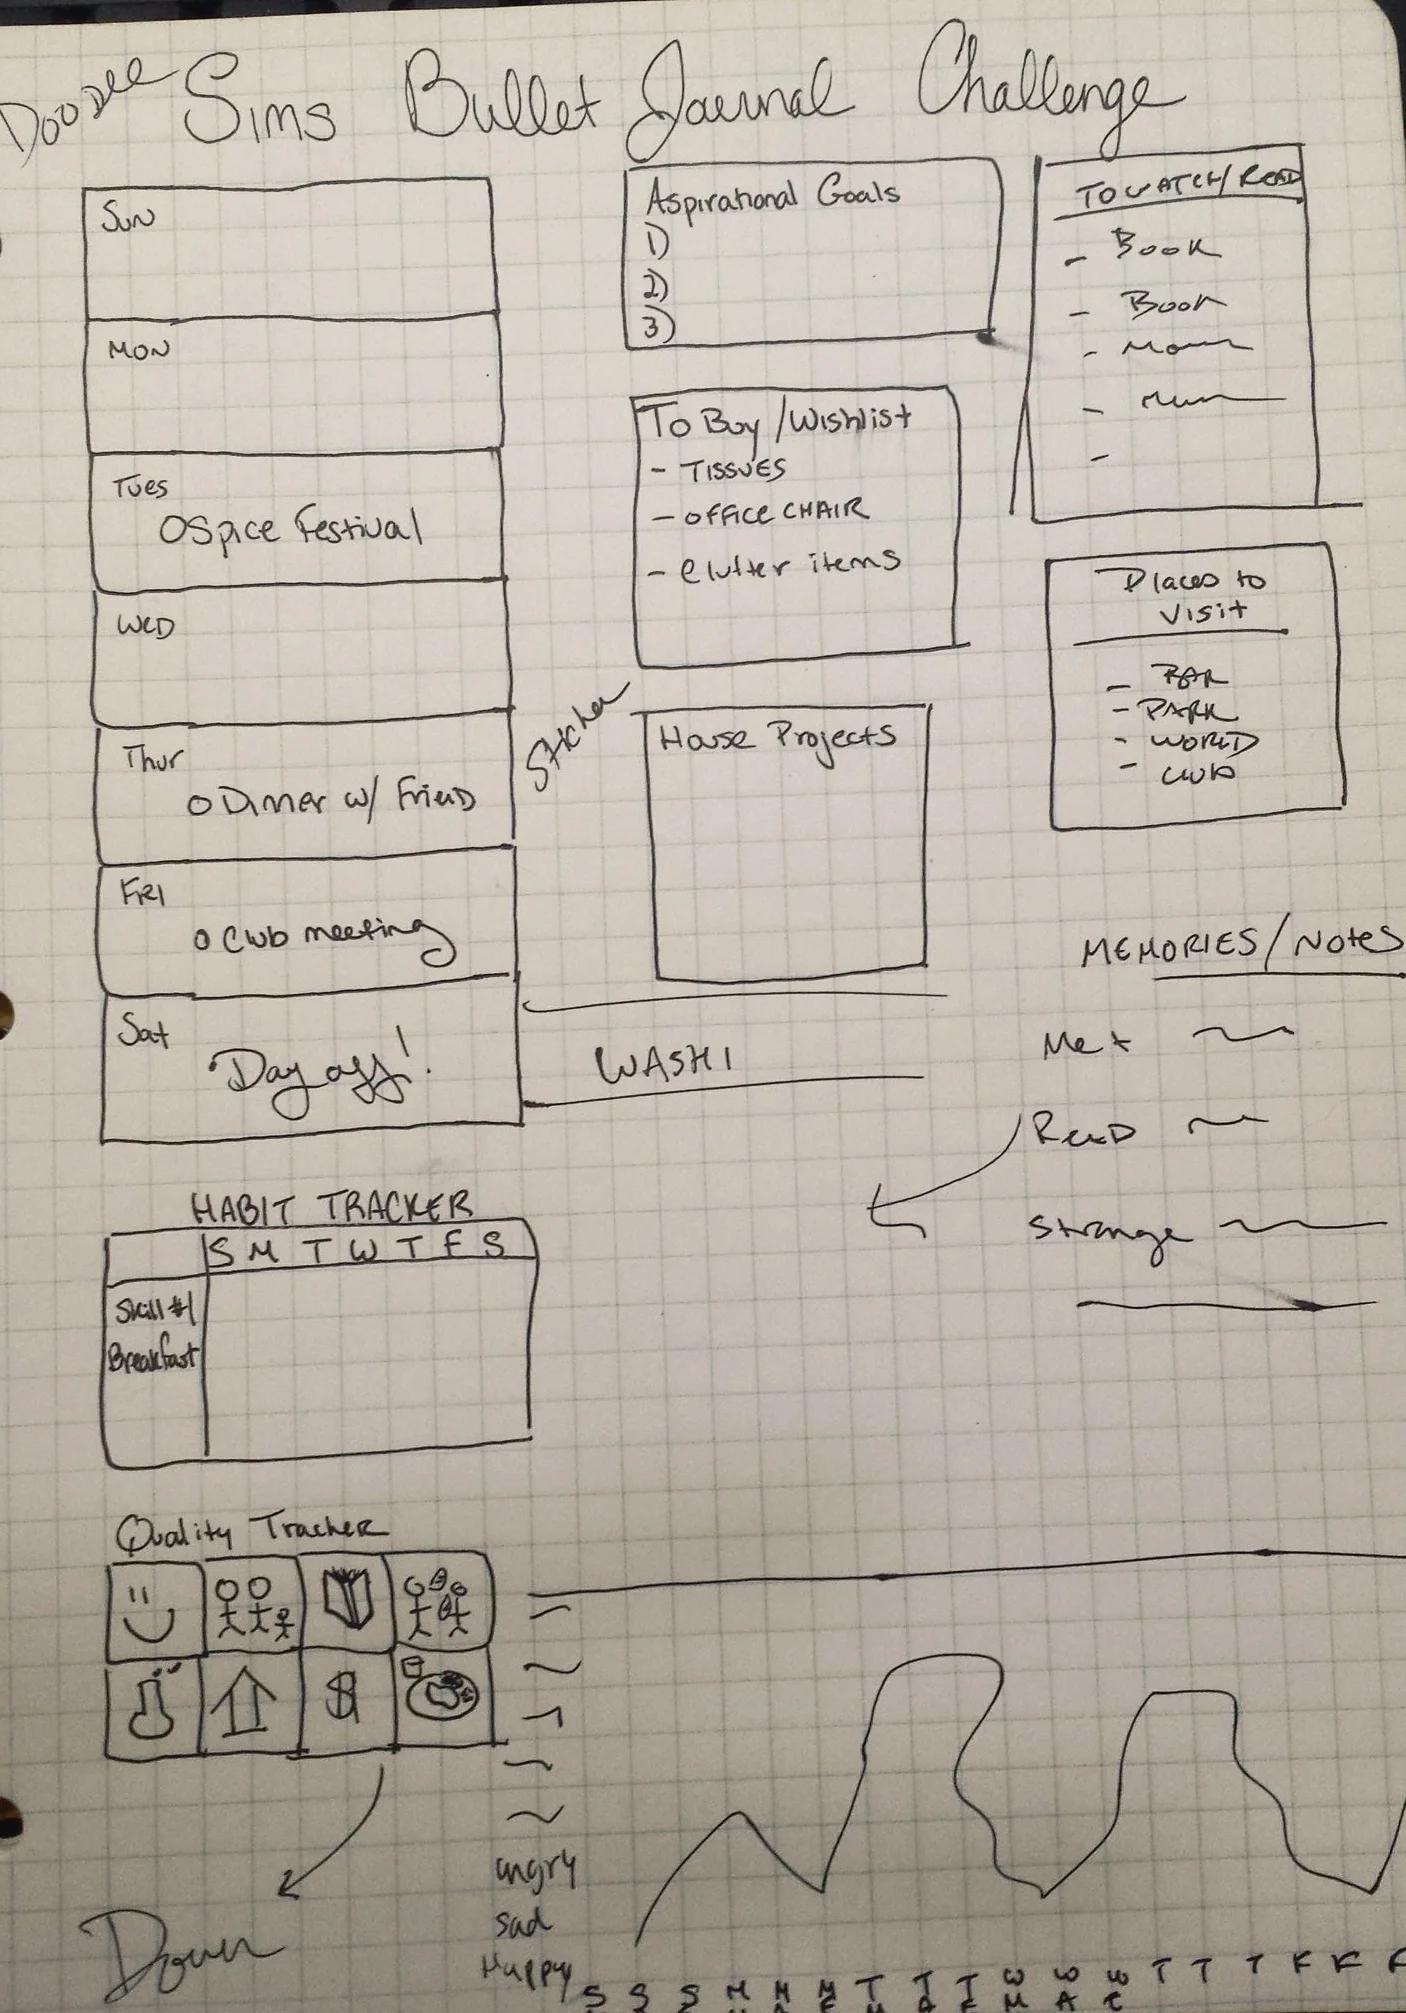 Doodle
Sims Bullet Journal Challenge
Sun
Mon
Tues
O Spice Festival
Wed
Thur
O Dinner w/ Friend
Fri
O Club meeting
Sat
Day off!
Sticker
WASHI
Aspirational Goals
1)
2)
3)
To Buy/Wishlist
- TISSUES
- OFFICE CHAIR
- Clutter items
House Projects
TO WATCH/READ
- Book
- Book
-
-
-
Places to
Visit
- BAR
- PARK
- WORLD
- Club
MEMORIES/Notes
Met
Read
Strange
HABIT TRACKER
S M T W T F S
Skill #1
Breakfast
Quality Tracker
$
Down
angry
sad
Happy
S S S M M M T T T W W W T T T F F F
M A E